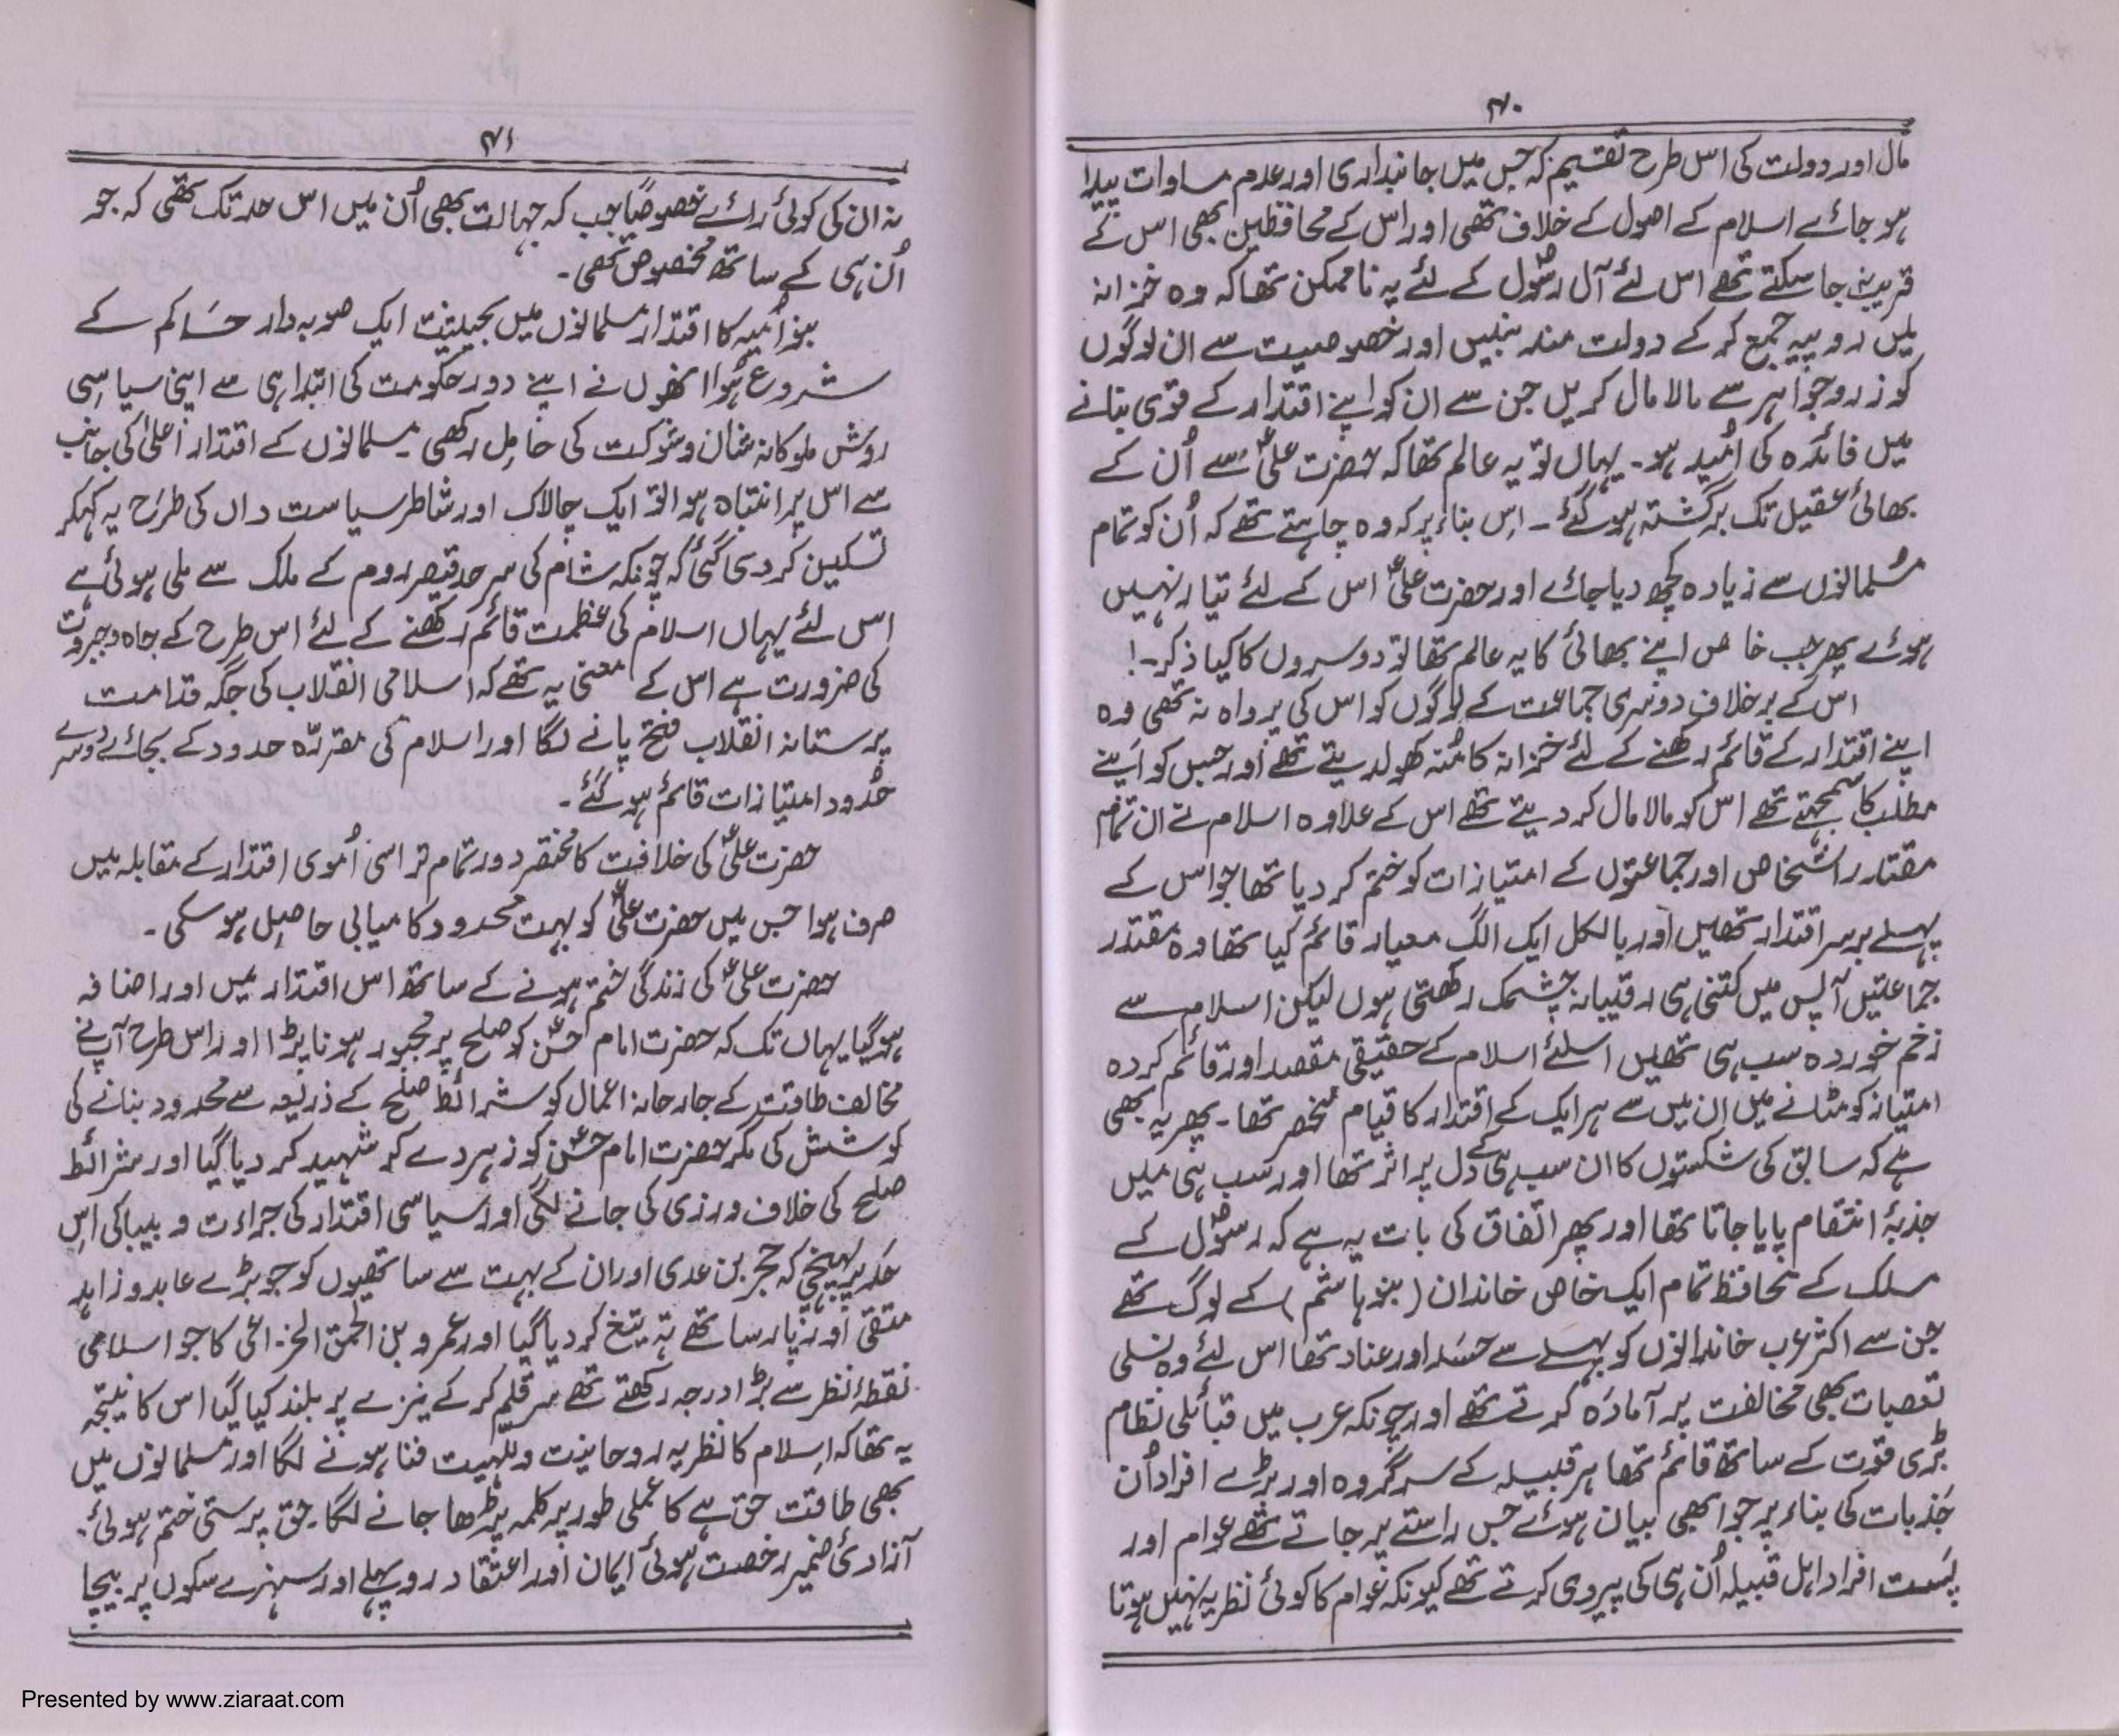 ۴۰
مال اور دولت کی اس طرح تقسیم کہ جس میں جانبداری اور عدم مساوات پیدا
ہو جائے اسلام کے اصول کے خلاف تھی اور اس کے محافظین بھی اس کے
قریب نہ جا سکتے تھے اس لئے آل رسولؐ کے لئے یہ ناممکن تھا کہ وہ خزانہ
میں روپیہ جمع کر کے دولت مند بنیں اور خصوصیت سے ان لوگوں
کو زر و جواہر سے مالا مال کریں جن سے ان کو اپنے اقتدار کے قوی بنانے
میں فائدہ کی اُمید ہو۔ یہاں تو یہ عالم تھا کہ حضرت علیؑ سے اُن کے
بھائی عقیل تک برگشتہ ہو گئے۔ اس بناء پر کہ وہ چاہتے تھے کہ اُن کو تمام
مسلمانوں سے زیادہ کچھ دیا جائے اور حضرت علیؑ اس کے لئے تیار نہیں
ہوئے پھر جب خاص اپنے بھائی کا یہ عالم تھا تو دوسروں کا کیا ذکر۔!
اس کے برخلاف دوسری جماعت کے لوگوں کو اس کی پرواہ نہ تھی وہ
اپنے اقتدار کے قائم رکھنے کے لئے خزانہ کا مُنہ کھولدیتے تھے اور جس کو اپنے
مطلب کا سمجھتے تھے اس کو مالا مال کر دیتے تھے اس کے علاوہ اسلام نے ان تمام
مقتدر اشخاص اور جماعتوں کے امتیازات کو ختم کر دیا تھا جو اس کے
پہلے برسر اقتدار تھیں اور بالکل ایک الگ معیار قائم کیا تھا وہ مقتدر
جماعتیں آپس میں کتنی ہی رقیبانہ چشمک رکھتی ہوں لیکن اسلام سے
زخم خوردہ سب ہی تھیں اسلئے اسلام کے حقیقی مقصد اور قائم کردہ
امتیاز کو مٹانے میں ان میں سے ہر ایک کے اقتدار کا قیام منحصر تھا۔ پھر یہ بھی
ہے کہ سابق کی شکستوں کا ان سب ہی کے دل پر اثر تھا اور سب ہی میں
جذبۂ انتقام پایا جاتا تھا اور پھر اتفاق کی بات یہ ہے کہ رسولؐ کے
مسلک کے محافظ تمام ایک خاص خاندان (بنو ہاشم) کے لوگ تھے
جن سے اکثر عرب خاندانوں کو پہلے سے حسد اور عناد تھا اس لئے وہ نسلی
تعصبات بھی مخالفت پر آمادہ کرتے تھے اور چونکہ عرب میں قبائلی نظام
بڑی قوت کے ساتھ قائم تھا ہر قبیلہ کے سرگروہ اور بڑے افراد اُن
جذبات کی بناء پر جو ابھی بیان ہوئے جس راستے پر جاتے تھے عوام اور
پست افراد اہل قبیلہ اُن ہی کی پیروی کرتے تھے کیونکہ عوام کا کوئی نظریہ نہیں ہوتا
۴۱
نہ ان کی کوئی رائے خصوصیاً جب کہ جہالت بھی اُن میں اس حد تک تھی کہ جو
اُن ہی کے ساتھ مخصوص تھی۔
بنو اُمیہ کا اقتدار مسلمانوں میں بحیثیت ایک صوبہ دار حاکم کے
شروع ہوا انھوں نے اپنے دور حکومت کی ابتدا ہی سے اپنی سیاسی
روش ملوکانہ شان و شوکت کی حامل رکھی۔ مسلمانوں کے اقتدار اعلیٰ کی جانب
سے اس پر انتباہ ہوا تو ایک چالاک اور شاطر سیاست داں کی طرح یہ کہکر
تسکین کر دی گئی کہ چونکہ شام کی سرحد قیصر روم کے ملک سے ملی ہوئی ہے
اس لئے یہاں اسلام کی عظمت قائم رکھنے کے لئے اس طرح کے جاہ و جبروت
کی ضرورت ہے اس کے معنی یہ تھے کہ اسلامی انقلاب کی جگہ قدامت
پرستانہ انقلاب فتح پانے لگا اور اسلام کی مقررہ حدود کے بجائے دوسرے
حدود امتیازات قائم ہو گئے۔
حضرت علیؑ کی خلافت کا مختصر دور تمام تر اسی اُموی اقتدار کے مقابلہ میں
صرف ہوا جس میں حضرت علیؑ کو بہت محدود کامیابی حاصل ہو سکی۔
حضرت علیؑ کی زندگی ختم ہونے کے ساتھ اس اقتدار میں اور اضافہ
ہو گیا یہاں تک کہ حضرت امام حسنؑ کو صلح پر مجبور ہونا پڑا اور اس طرح آپ نے
مخالف طاقت کے جارحانہ اعمال کو شرائط صلح کے ذریعہ سے محدود بنانے کی
کوشش کی مگر حضرت امام حسنؑ کو زہر دے کر شہید کر دیا گیا اور شرائط
صلح کی خلاف ورزی کی جانے لگی اور سیاسی اقتدار کی جراءت و بیباکی اس
حد پر پہنچی کہ حجر بن عدی اور ان کے بہت سے ساتھیوں کو جو بڑے عابد و زاہد
متقی اور پارسا تھے تہ تیغ کر دیا گیا اور عمرو بن الحمق الخزاعی کا جو اسلامی
نقطۂ نظر سے بڑا درجہ رکھتے تھے سر قلم کر کے نیزے پر بلند کیا گیا اس کا نتیجہ
یہ تھا کہ اسلام کا نظریہ روحانیت و للہیت فنا ہونے لگا اور مسلمانوں میں
بھی طاقت حق ہے کا عملی طور پر کلمہ پڑھا جانے لگا۔ حق پرستی ختم ہوئی۔
آزادیٔ ضمیر رخصت ہوئی ایمان اور اعتقاد روپہلے اور سنہرے سکوں پر بیچا
Presented by www.ziaraat.com